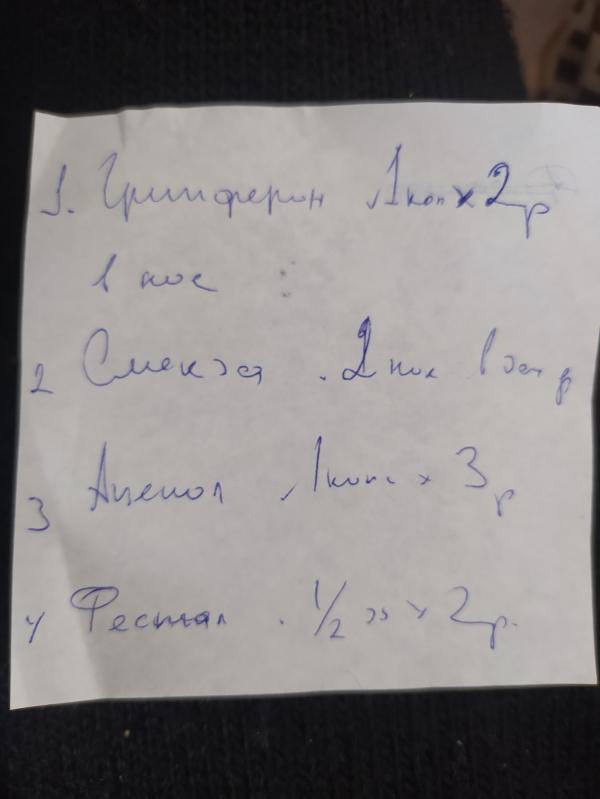 1. Гриппферон 1 кап x 2 р
в нос
2 Смекта 2 пак в день
3 Аципол 1 капс x 3 р
4 Фестал 1/2 x 2 р.